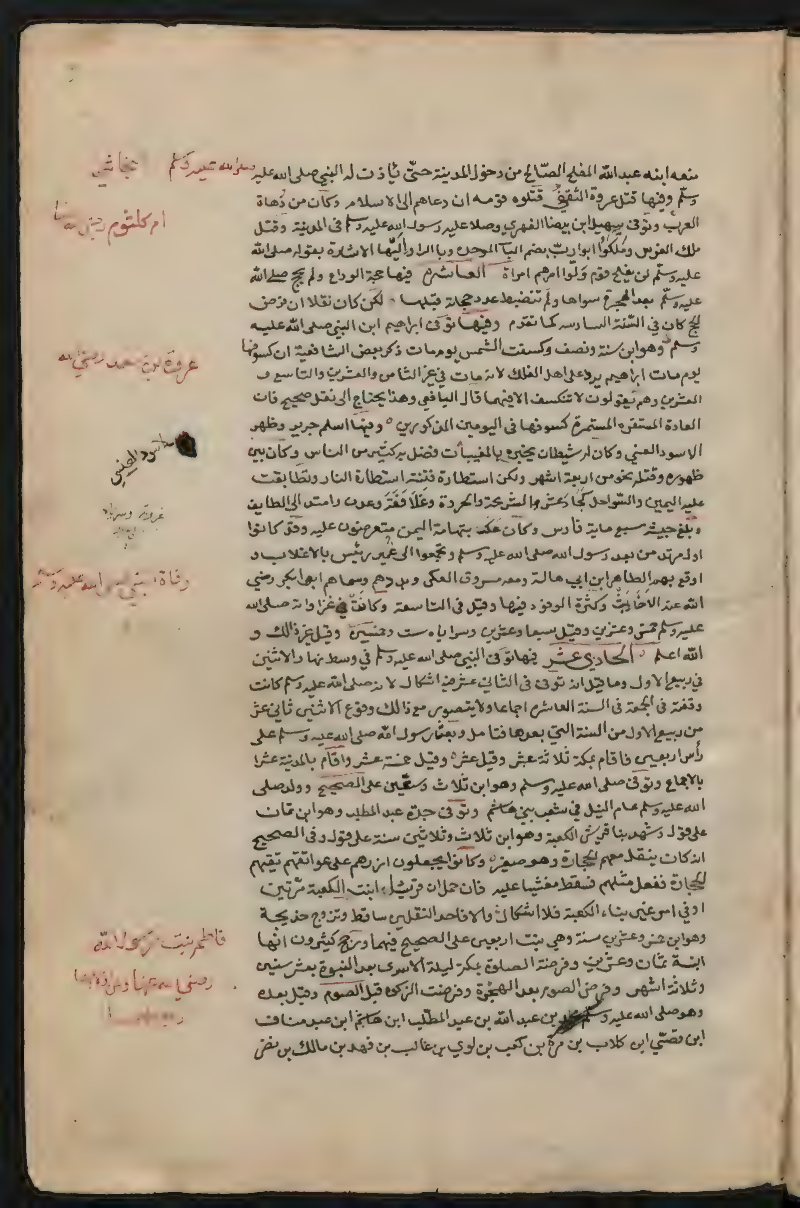 منعه ابنه عبد الله المفلح الصالح من دخول المدينة حتى ياذن له النبي صلى الله عليه
وسلم وفيها قتل عروة الثقفي قتلوه قومه ان دعاهم الى الاسلام وكان من دهاة
العرب وتوفى سهيل ابن بيضا الفهري وصلا عليه رسول الله عليه وسلم في المدينة وقتل
ملك الفرس وملكوا ابوارت بضم البا الموحده وبالرا واليها الاشارة بقوله صلى الله
عليه وسلم لن يفلح قوم ولوا امرهم امراة العاشرة فيها حجة الوداع ولم يحج صلى الله
عليه وسلم بعد الهجرة سواها ولم تنضبط عدد حجاته قبلها لكن كان نقلا ان فرض
الحج كان في السنة السادسة كما تقدم وفيها توفى ابراهيم ابن النبي صلى الله عليه
وسلم وهو ابن سنة ونصف وكسفت الشمس يوم مات ذكر بعض الشافعية ان كسوفها
يوم مات ابراهيم يرد على اهل الفلك لانه مات في غير الثامن والعشرين والتاسع و
العشرين وهم يقولون لا تنكسف الا فيهما قال اليافعي وهذا يحتاج الى نقل صحيح فان
العادة المستقرة المستمرة كسوفها في اليومين المذكورين وفيها اسلم جرير وظهر
الاسود العنسي وكان له شيطان يخبره بالمغيبات فضل به كثير من الناس وكان بين
ظهوره وقتله نحو من اربعة اشهر ولكن استطارة فتنته استطارة النار وتطابقت
عليه اليمن والسواحل كجازعثر والشرجة والحردة وغلافقة وعدن وامتد الى الطايف
وبلغ جيشه سبع ماية فارس وكان عك بتهامة اليمن متعرضون عليه وقد كانوا
اول مرتد من بعد رسول الله صلى الله عليه وسلم وتجمعوا الى غير رئيس بالاعلاب و
اوقع بهم الطاهر ابن ابي هالة ومعه مسروق العكى وبددهم وسماهم ابو بكر رضي
الله عنه الاخابث وكثرة الوفود فيها وقيل في التاسعة وكانت غزواته صلى الله
عليه وسلم خمس وعشرين وقيل سبعا وعشرين وسراياه ست وخمسين وقيل غير ذالك و
الله اعلم الحادي عشر فيها توفى النبي صلى الله عليه وسلم في وسط نهار الاثنين
في ربيع الاول وما قيل انه توفى في الثاني عشر فيه اشكال لانه صلى الله عليه وسلم كانت
وقفته في الجمعة في السنة العاشرة اجماعا ولا يتصور مع ذالك وقوع الاثنين ثاني عشر
من ربيع الاول من السنة التي بعدها فتامل وبعث رسول الله صلى الله عليه وسلم على
راس اربعين فاقام بمكة ثلاثة عشر وقيل عشر وقيل خمسة عشر واقام بالمدينة عشرا
بالاجماع وتوفى صلى الله عليه وسلم وهو ابن ثلاث وستين على الصحيح وولد صلى
الله عليه وسلم عام الفيل في شعب بني هاشم وتوفى جده عبد المطلب وهو ابن ثمان
على قول وشهد بنا قريش الكعبة وهو ابن ثلاث وثلاثين سنة على قول وفي الصحيح
انه كان ينقل معهم الحجارة وهو صغير وكانوا يجعلون ازرهم على عواتقهم تقيهم
الحجارة ففعل مثلهم فسقط مغشيا عليه فان حمل ان قريش ابنت الكعبة مرتين
او في امر غير بناء الكعبة فلا اشكال والا فاحد النقلين ساقط وتزوج خديجة
وهو ابن خمس وعشرين سنة وهي بنت اربعين على الصحيح فيهما ورجح كثيرون انها
ابنة ثمان وعشرين وفرضة الصلوة بمكة ليلة الاسرى بعد النبوة بعشر سنين
وثلاثة اشهر وفرض الصوم بعد الهجرة وفرضت الزكوة قبل الصوم وقيل بعده
وهو صلى الله عليه وسلم محمد بن عبد الله بن عبد المطلب ابن هاشم ابن عبد مناف
ابن قصي ابن كلاب بن مرة بن كعب بن لوي بن غالب بن فهد بن مالك بن نضر
نجاشي
ام كلثوم رضي الله عنها
عروة بن مسعد رضي الله
الاسود العنسي
وفاة النبي صلى الله عليه وسلم
فاطمة بنت رسول الله
رضي الله عنها